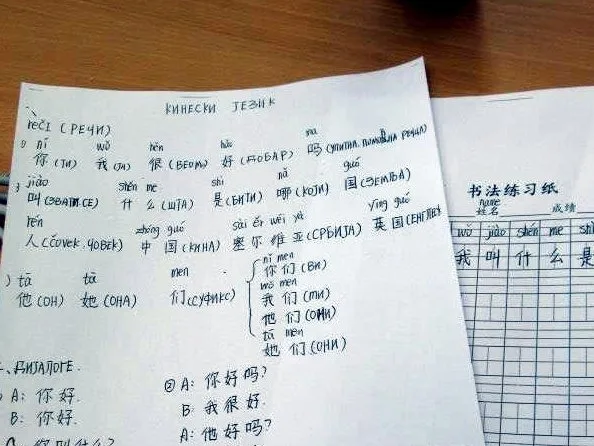 КИНЕСКИ ЈЕЗИК
REČI (РЕЧИ)
nǐ wǒ hěn hǎo ma
你 (ТИ) 我 (ЈА) 很 (ВЕОМА) 好 (ДОБАР) 吗
jiào shén me shì nǎ guó
叫 (ЗВАТИ СЕ) 什 么 (ШТА) 是 (БИТИ) 哪 (КОЈИ) 国 (ЗЕМЉА)
rén zhōng guó sài ěr wéi yà yīng guó
人 (ČOVEK, ЧОВЕК) 中 国 (КИНА) 塞 尔 维 亚 (СРБИЈА) 英 国
tā tā men
他 (ОН) 她 (ОНА) 们 (СУФИКС)
nǐ men
你 们 (ВИ)
wǒ men
我 们 (МИ)
他 们 (ОНИ)
tā men
她 们 (ОНИ)
ДИЈАЛОГЕ
A: 你 好.
B: 你 好.
② A: 你 好 吗?
B: 我 很 好.
A: 他 好 吗?
书法练习纸
name
姓名 成绩
wǒ jiào shén me shì
我 叫 什 么 是